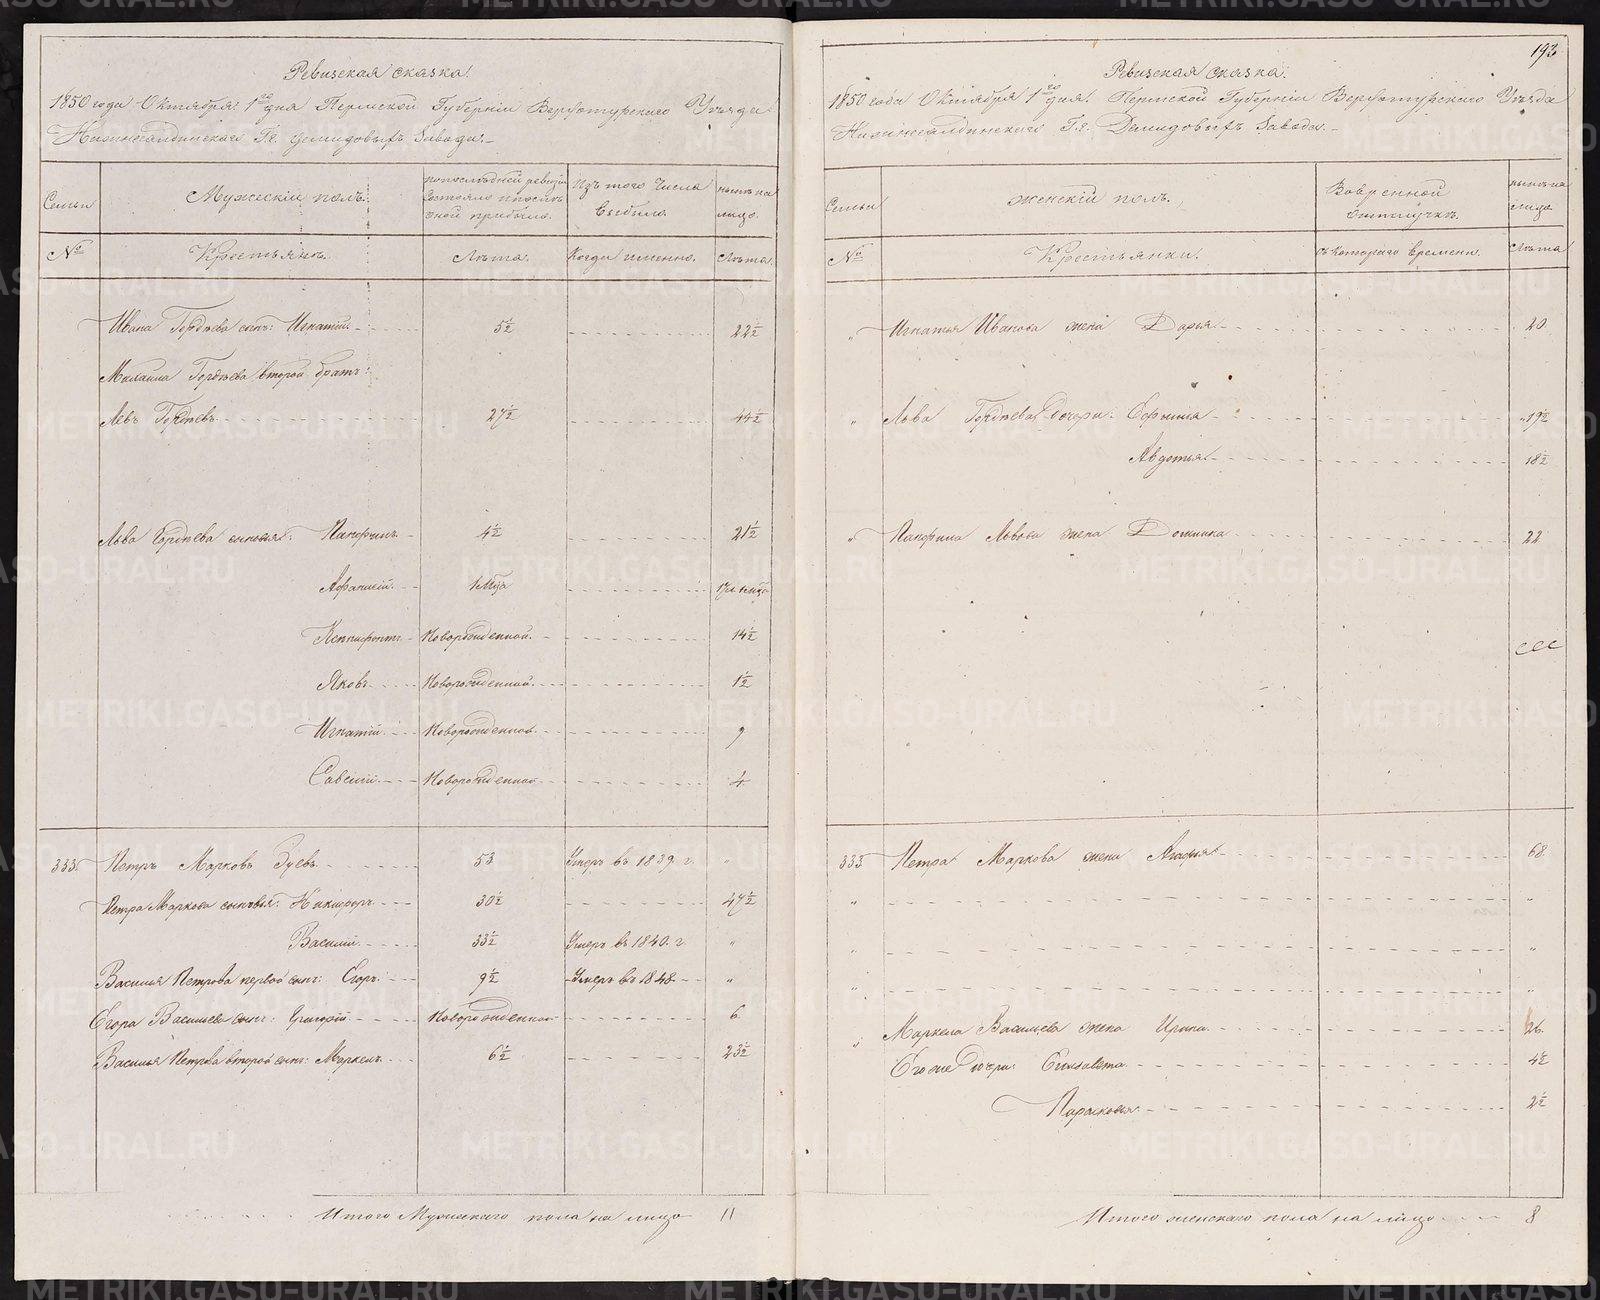 Ревизская сказка.
1850 года Октября 1го дня Пермской Губерніи Верхотурскаго Уѣзда
Нижнесалдинскаго Гг. Демидовыхъ Завода.
Семьи
Мужескій полъ.
По последней ревизіи состояло и после оной прибыло.
Изъ того числа выбыло.
Нынѣ на лицо.
№
Крестьянъ.
Лѣта.
Когда именно.
Лѣта.
Ивана Гордѣева сынъ: Игнатій. 5½ 22½
Гордѣева второй братъ:
Левъ Гордѣевъ 27½ 44½
Льва Гордѣева сыновья: Панфилъ 4½ 21½
Афанасій 1 мца
Ксенофонтъ Новорожденной. 14½
Яковъ Новорожденной. 1½
Игнатій Новорожденной. 9
Савелій Новорожденной 4
333. Петръ Марковъ Зуевъ 53 Умеръ въ 1839 г. "
Петра Маркова сыновья: Никифоръ 30½ 47½
Василій 33½ Умеръ въ 1840 г. "
Василья Петрова первой сынъ: Егоръ 9½ Умеръ въ 1848 "
Егора Васильева сынъ: Григорій Новорожденной 6
Василья Петрова второй сынъ: Маркелъ 6½ 23½
Итого Мужескаго пола на лицо 11
193
Ревизская сказка.
1850 года Октября 1го дня. Пермской Губерніи Верхотурскаго Уѣзда
Нижнесалдинскаго Гг. Демидовыхъ Завода.
Семьи
Женскій полъ.
Во временной отлучкѣ.
Нынѣ на лицо.
№
Крестьянки.
Съ котораго времени.
Лѣта
" Игнатья Иванова жена Дарья 20.
" Льва Гордѣева дочери: Ефимія 19½
Авдотья 18½
" Панфила Львова жена Домника 22
333 Петра Маркова жена Агафья 68.
" "
" "
" "
" Маркела Васильева жена Ирина 26.
Его же дочери: Елизавета 4½
Парасковья 2½
Итого женскаго пола на лицо 8
METRIKI.GASO-URAL.RU